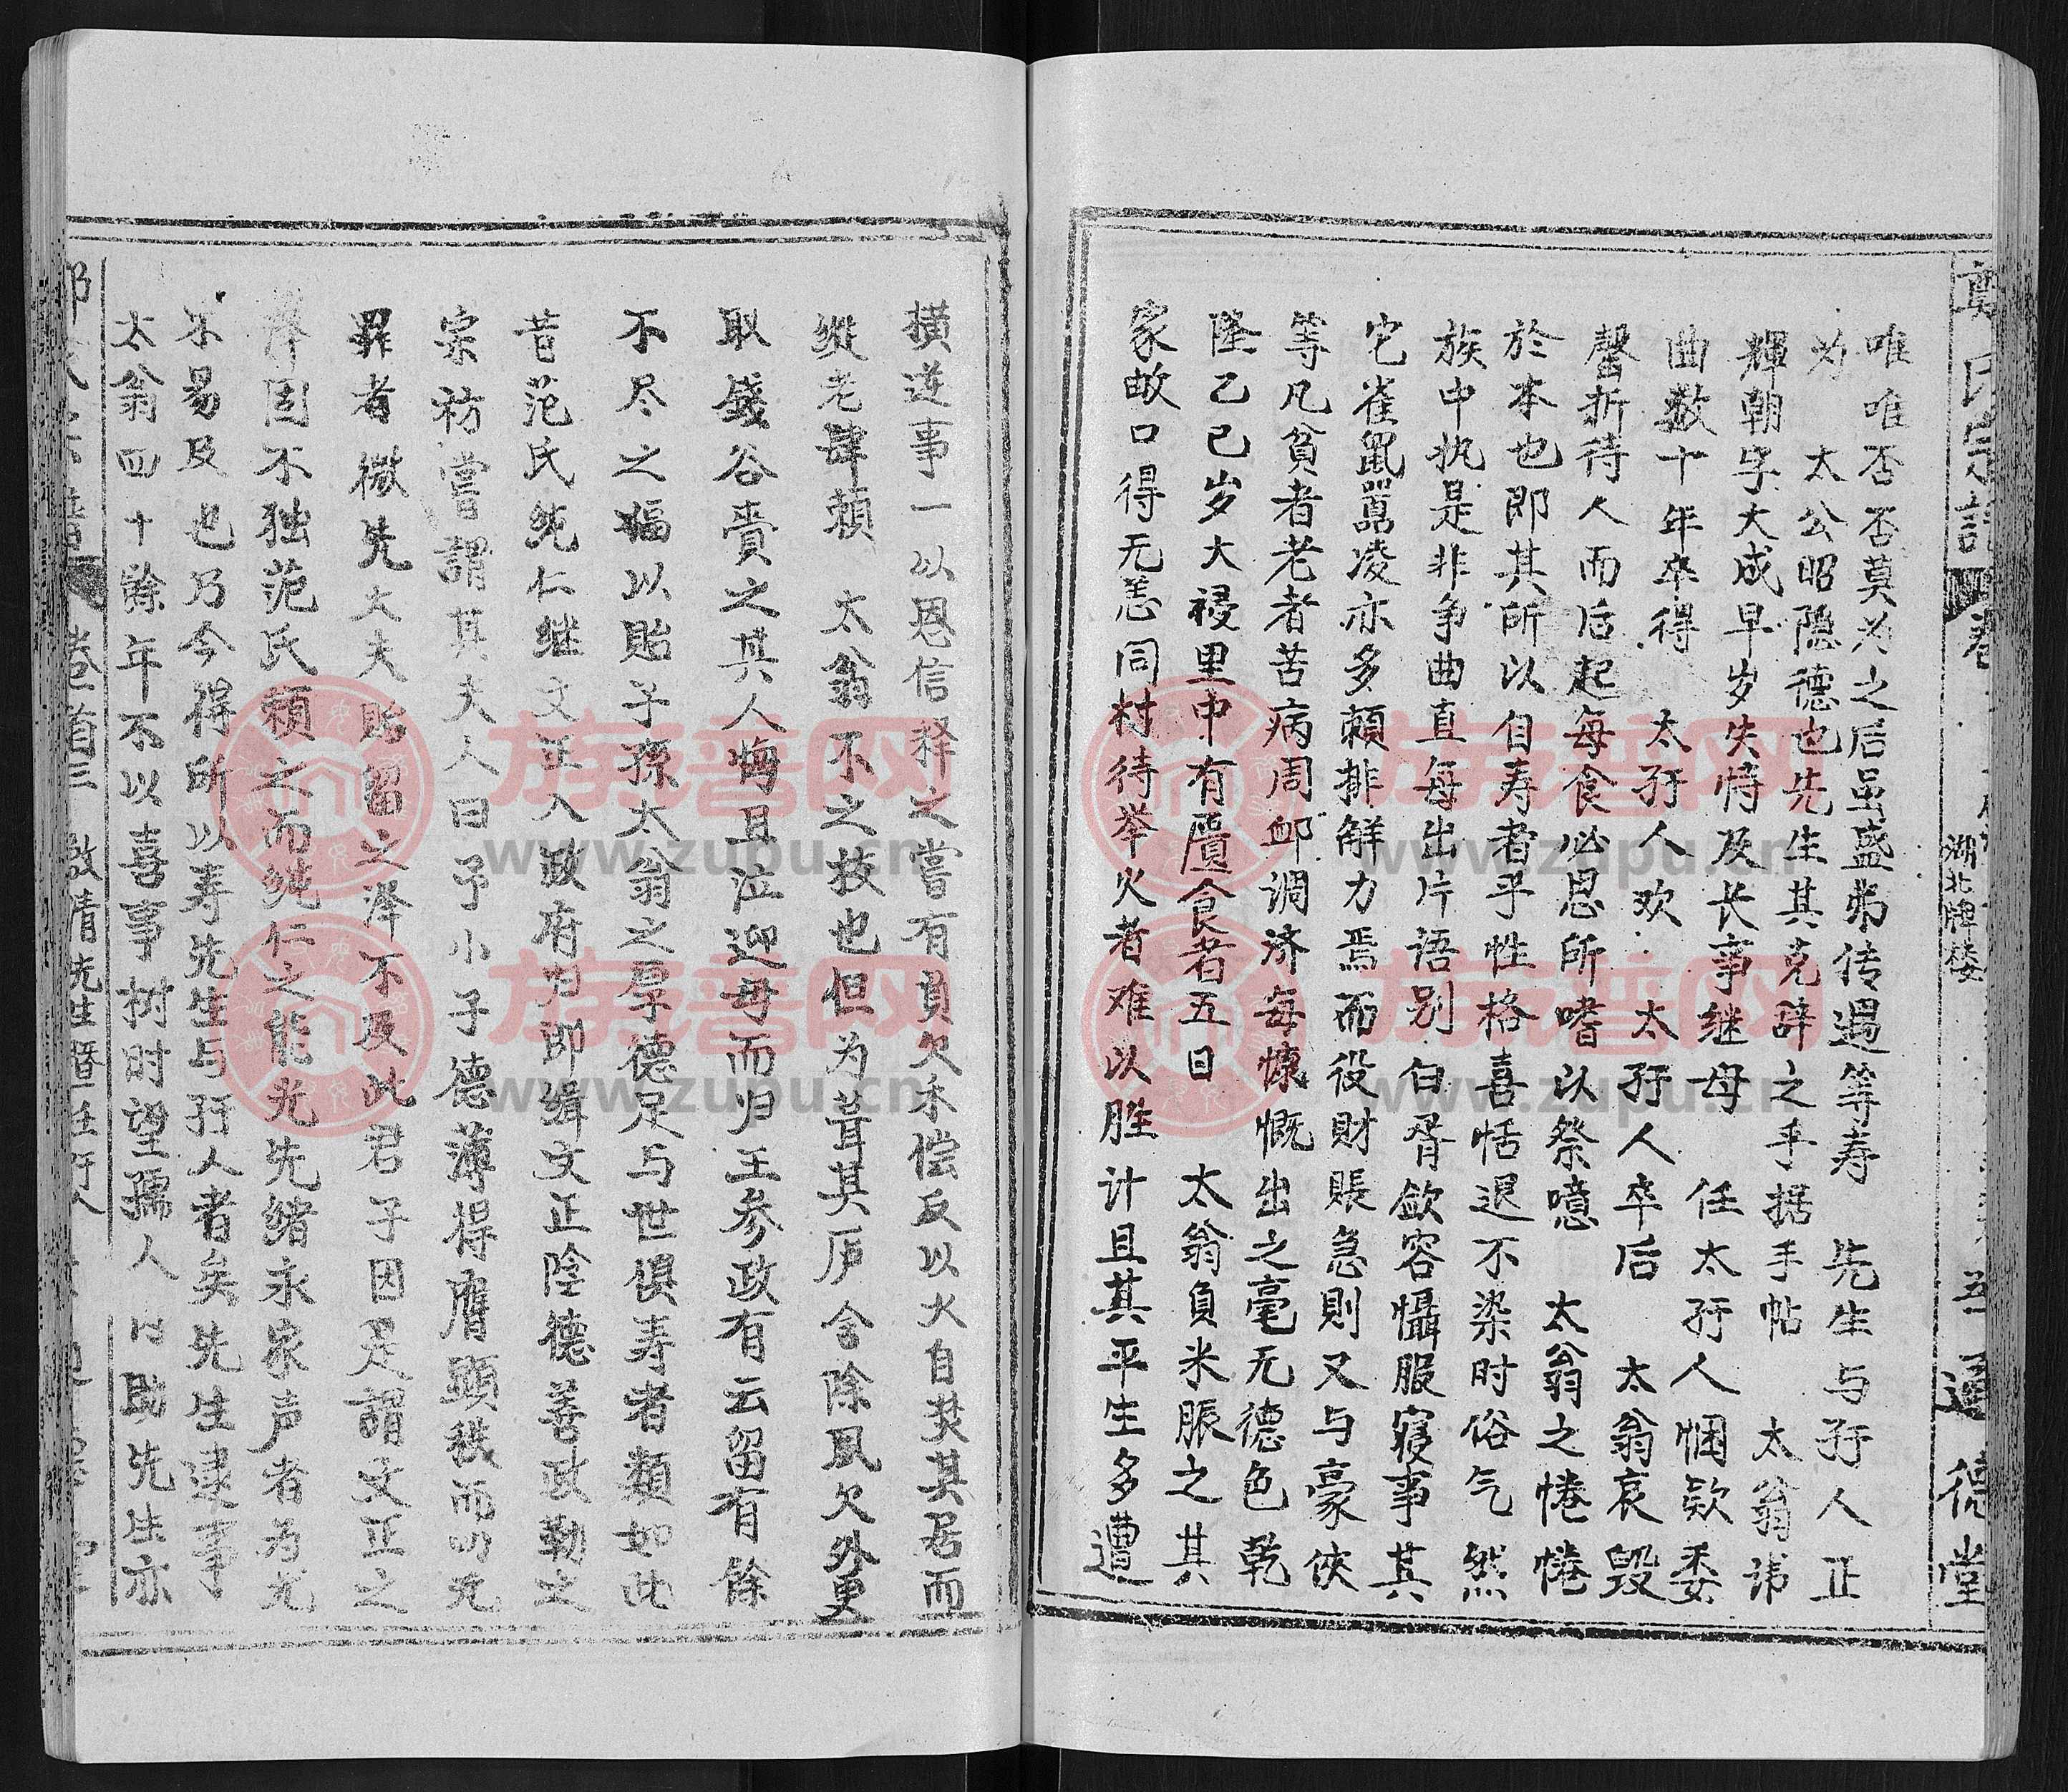 唯唯否否莫为之后虽盛弗传遇等寿　先生与孖人正
为　太公昭隐德也先生其克辞之手据手帖　太翁讳
輝朝字大成早岁失恃及长事继母　任太孖人悃欵委
曲数十年卒得　太孖人欢　太孖人卒后　太翁哀毁
罄折待人而后起每食必思所嗜以祭噫　太翁之惓惓
於本也即其所以自寿者乎性格喜恬退不染时俗气然
族中执是非争曲直每出片语别白胥歛容慑服寝事其
它雀鼠嚚凌亦多賴排解力焉而役財賬急則又与豪俠
等凡貧者老者苦病周邺调济每慷慨出之毫无德色乾
隆乙巳岁大祲里中有匱食者五日　太翁負米賑之其
家畝口得无恙同村待举火者难以胜计且其平生多遭
湖北牌楼
德堂
横逆事一以恩信释之嘗有負欠未偿反以火自焚其居而
縱老肆賴　太翁不之技也但为葺其庐舍除風欠外更
取錢谷賫之其人悔且泣迎母而归王参政有云留有餘
不尽之福以贻子孫太翁之厚德足与世俱寿者類如此
昔范氏純仁继文正入政府为即缉文正陰德善政勒之
宗祊嘗謂其夫人曰予小子德薄得膺顯秩而叨元
罪者微先大夫贻留之泽不及此君子因是謂文正之
泽固不独范氏頼之而純仁之能光先绪永家声者为尤
不易及也乃今得所以寿先生与孖人者矣先生逮事
太翁四十餘年不以喜事树时望孺人　助先生亦
卷首三　敬清先生暨任孖人